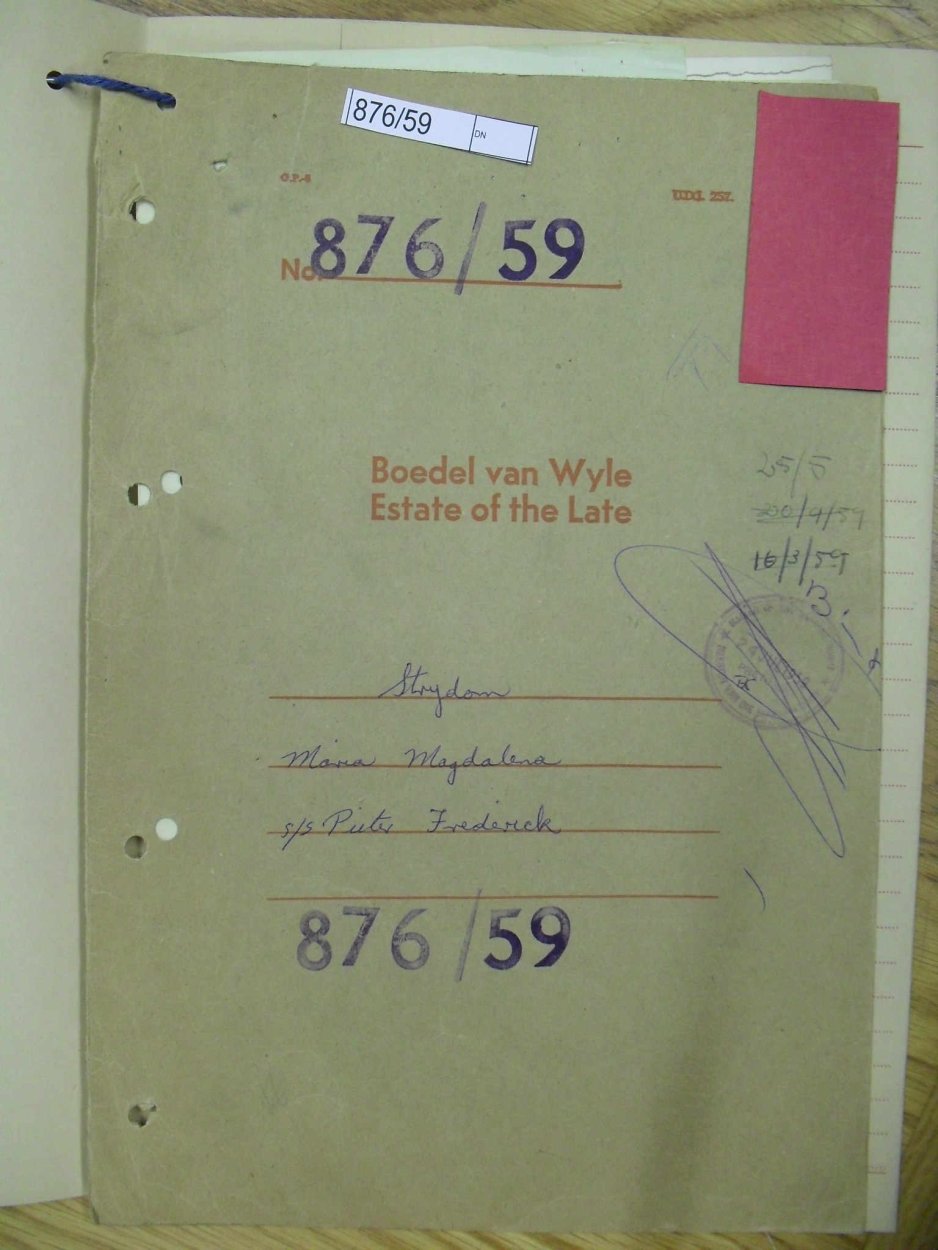 876/59 DN
G.P.-S
U.D.J. 257.
No. 876/59
Boedel van Wyle
Estate of the Late
25/5
16/3/59
B.
Strydom
Maria Magdalena
s/s Pieter Frederick
876/59